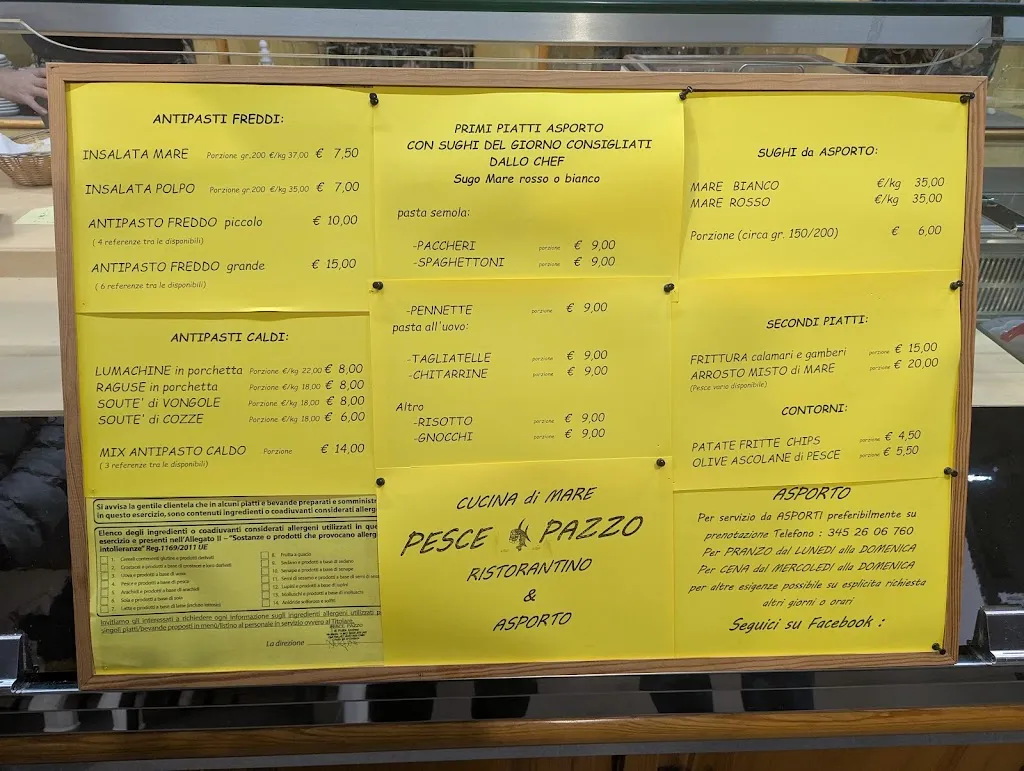 ANTIPASTI FREDDI:
INSALATA MARE Porzione gr.200 €/kg 37,00 € 7,50
INSALATA POLPO Porzione gr.200 €/kg 35,00 € 7,00
ANTIPASTO FREDDO piccolo € 10,00
( 4 referenze tra le disponibili)
ANTIPASTO FREDDO grande € 15,00
( 6 referenze tra le disponibili)
ANTIPASTI CALDI:
LUMACHINE in porchetta Porzione €/kg 22,00 € 8,00
RAGUSE in porchetta Porzione €/kg 18,00 € 8,00
SOUTE' di VONGOLE Porzione €/kg 18,00 € 8,00
SOUTE' di COZZE Porzione €/kg 18,00 € 6,00
MIX ANTIPASTO CALDO Porzione € 14,00
( 3 referenze tra le disponibili)
Si avvisa la gentile clientela che in alcuni piatti e bevande preparati e somministr
in questo esercizio, sono contenuti ingredienti o coadiuvanti considerati allergen
Elenco degli ingredienti o coadiuvanti considerati allergeni utilizzati in que
esercizio e presenti nell'Allegato II – "Sostanze o prodotti che provocano allerg
intolleranze" Reg.1169/2011 UE
1. Cereali contenenti glutine e prodotti derivati
2. Crostacei e prodotti a base di crostacei
3. Uova e prodotti a base di uova
4. Pesce e prodotti a base di pesce
5. Arachidi e prodotti a base di arachidi
6. Soia e prodotti a base di soia
7. Latte e prodotti a base di latte (incluso lattosio)
8. Frutta a guscio
9. Sedano e prodotti a base di sedano
10. Senape e prodotti a base di senape
11. Semi di sesamo e prodotti a base di semi di
12. Lupini e prodotti a base di lupini
13. Molluschi e prodotti a base di mollusco
14. Anidride solforosa e solfiti
Invitiamo gli interessati a richiedere ogni informazione sugli ingredienti allergeni utilizzati
singoli piatti/bevande proposti in menù/listino al personale in servizio ovvero al Titolare
La direzione
PESCE PAZZO
PRIMI PIATTI ASPORTO
CON SUGHI DEL GIORNO CONSIGLIATI
DALLO CHEF
Sugo Mare rosso o bianco
pasta semola:
-PACCHERI porzione € 9,00
-SPAGHETTONI porzione € 9,00
-PENNETTE porzione € 9,00
pasta all'uovo:
-TAGLIATELLE porzione € 9,00
-CHITARRINE porzione € 9,00
Altro
-RISOTTO porzione € 9,00
-GNOCCHI porzione € 9,00
CUCINA di MARE
PESCE PAZZO
RISTORANTINO
&
ASPORTO
SUGHI da ASPORTO:
MARE BIANCO €/kg 35,00
MARE ROSSO €/kg 35,00
Porzione (circa gr. 150/200) € 6,00
SECONDI PIATTI:
FRITTURA calamari e gamberi porzione € 15,00
ARROSTO MISTO di MARE porzione € 20,00
(Pesce vario disponibile)
CONTORNI:
PATATE FRITTE CHIPS porzione € 4,50
OLIVE ASCOLANE di PESCE porzione € 5,50
ASPORTO
Per servizio da ASPORTI preferibilmente su
prenotazione Telefono : 345 26 06 760
Per PRANZO dal LUNEDI alla DOMENICA
Per CENA dal MERCOLEDI alla DOMENICA
per altre esigenze possibile su esplicita richiesta
altri giorni o orari
Seguici su Facebook :